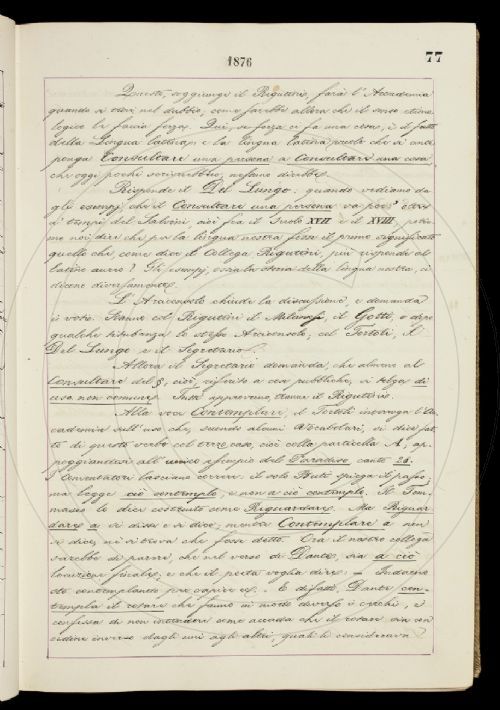 1876
77
Questo, soggiunge il Rigutini, farà l'Accademia
quando si trovi nel dubbio, come farebbe allora che il senso etimo-
logico le faccia forza. Qui, se forza ci fa una cosa, è il fatto
della Lingua latina; e la lingua latina vuole che si ante-
ponga Consultare una persona a Consultare una cosa,
che oggi pochi scriverebbero, nessuno direbbe.
Risponde il Del Lungo: quando vediamo da-
gli esempj che il Consultare una persona va poco oltre
a' tempi del Salvini cioè fra il Secolo XVII e il XVIII, potre-
mo noi dire che per la lingua nostra fosse il primo significato
quello che, come dice il Collega Rigutini, più risponde al
latino aureo? Gli esempj, ossia la storia della lingua nostra, ci
dicono diversamente.
L'Arciconsolo chiude la discussione, e domanda
i voti. Stanno col Rigutini il Milanesi, il Gotti, e dopo
qualche titubanza lo stesso Arciconsolo; col Tortoli, il
Del Lungo e il Segretario.
Allora il Segretario domanda, che almeno al
Consultare del §, cioè, riferito a cosa pubblica, si tolga di
uso non comune. Tutti approvano, tranne il Rigutini.
Alla voce Contemplare, il Tortoli interroga l'Ac-
cademia sull'uso che, secondo alcuni Vocabolarj, si dice fat-
to di questo verbo col terzo caso, cioè colla particella A, ap-
poggiandosi all'unico esempio del Paradiso, canto 28.
I Comentatori lasciano correre: il solo Buti spiega il passo,
ma legge ciò contemplo, e non a ciò contemplo. Il Tom-
maseo lo dice costruito come Riguardare. Ma Riguar-
dare a si disse e si dice; mentre Contemplare a non
si dice, nè si trova che fosse detto. Ora il nostro collega
sarebbe di parere, che nel verso di Dante, sia a ciò
locuzione finale, e che il poeta voglia dire: — Indarno
sto contemplando per capire ec. — E difatti, Dante con-
templa il rotare che fanno in modo diverso i cerchi, e
confessa di non intendere come accada che il rotare sia con
ordine inverso dagli uni agli altri, quali li considerava